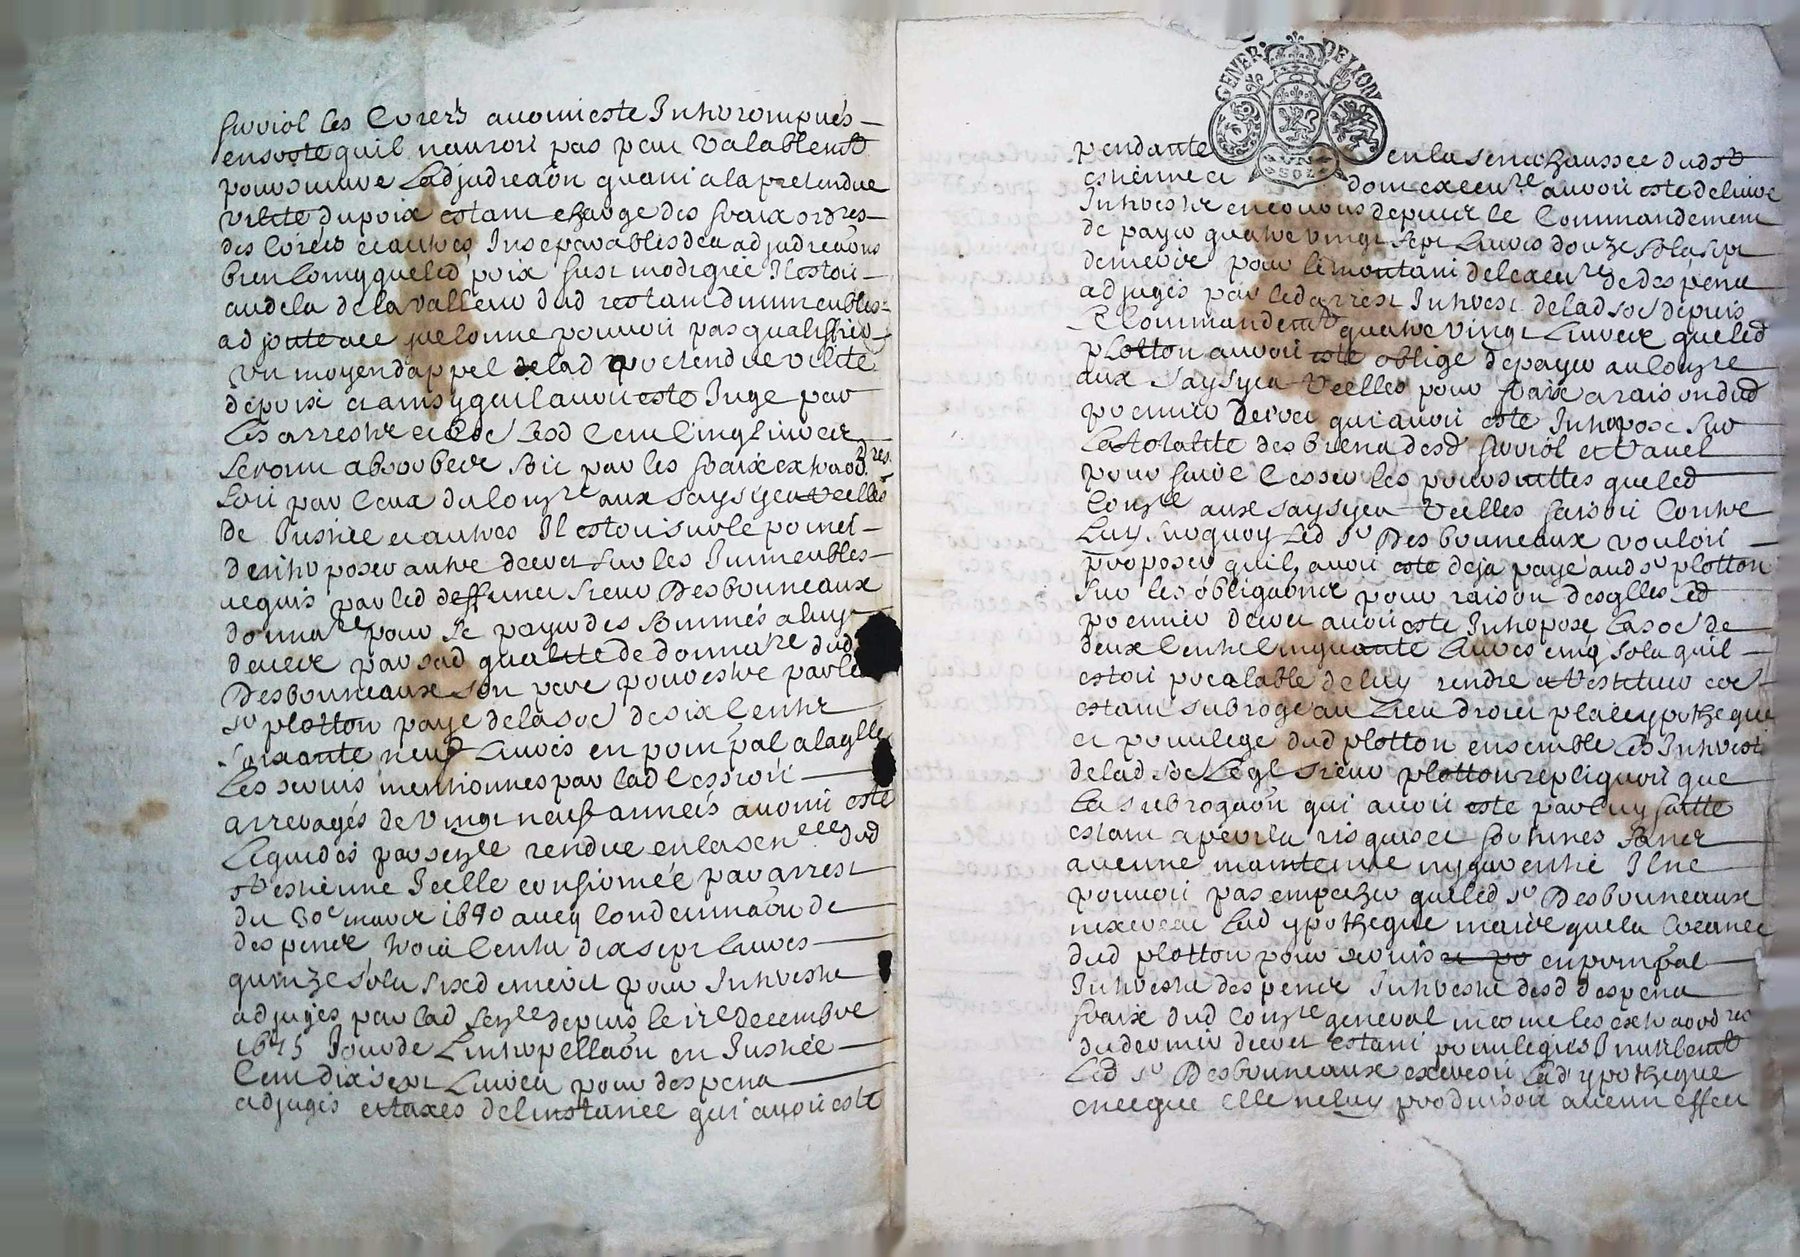 suviol les Corers avoint este Intrerompues
ensorte quil nauroit pas peu Valablemt
poursuivre Ladjudicaon quant a la pretendue
vilité du poix estant charge des fraix ordres
des Corers et autres Inseparables dela adjudicaons
bien Loing que led poix fust modique Il estoit
audela de la valleur dud restant dimmeubles
adjouste avec quelonne pouvoit pas qualiffier
un moyen dappel de lad pretendue vilité
de poix et ainsy quil avoit esté Juge par
Les arrestz Lesd Cent Cinq Livres
Seront absorbees soit par les fraix extraordres
soit par Ceux du Comre aux saysyes reelles
de Justice et autres Il estoit sur le point
dentreposer autre decret sur les Immeubles
acquis par led deffunct sieur Desbouneaux
donnare pour se payer des sommes a luy
deues par sad qualité de donnare dud
Desbouneaux son pere pour estre par le
sr plotton payé de la soe de six Cents
soixante neuf Livres en pornpal alaqlle
Les servis mentionnes par lad Cession
arrerages de vingt neuf années avoint esté
Liquidés par sence rendue en la senee dud
st estienne Icelle confirmée par arrest
du 30e mars 1680 avecq Condemnaon de
despens trois Cents dix sept Livres
quinze sols six deniers pour Intherestz
adjuges par lad sence depuis le ire decembre
1675 Jour de Linterpellaon en Justice
Cent dix sept Livres pour despens
adjugés et taxés de linstance qui avoit esté
GENER. DE LYON
UN SOL
pendante en la senechaussee dudst
estienne et dont execure avoit esté delivré
Intherestz encourus depuis le Commandement
de payer quatre vingt sept Livres douze sols sept
deniers pour le montant de lexecure de despens
adjugés par led arrest Interest de lad soe depuis
Le Commandemt quatre vingt Livres que led
plotton avoit esté obligé de payer au Comre
aux saysyes reelles pour fraix a raison dud
premier decret qui avoit esté Interposé sur
La totalité des biens desd suviol et Vauel
pour faire cesser les poursuittes que led
Comre aux saysyes reelles faisoit Contre
Luy, surquoy Led sr Desbouneaux vouloit
proposer quil avoit esté deja payé aud sr plotton
sur les obligaons pour raison desqlles Led
premier decret avoit esté Interposé la soe de
deux Cents Cinquante Livres cinq sols quil
estoit prealable de luy rendre et restituer
estant subrogé au Lieu droict place ypotheque
et privilege dud plotton ensemble Les Interest
de lad soe Legl sieur plotton repliquoit que
La subrogaon qui avoit esté par luy faitte
estant a perils risques et fortunes sans
aucune maintenue ny garentie Il ne
pouvoit pas empecher que led sr Desbouneaux
nexercat Lad ypotheque mais que la Creance
dud plotton pour servis et po en pornpal
Intherestz despens Intherestz desd despens
fraix dud Comre general mesme les extraordres
du dernier decret estant privilegiés Inutilemt
Led sr Desbouneaux exercoit Lad ypotheque
puisque elle ne luy produisoit aucun effect